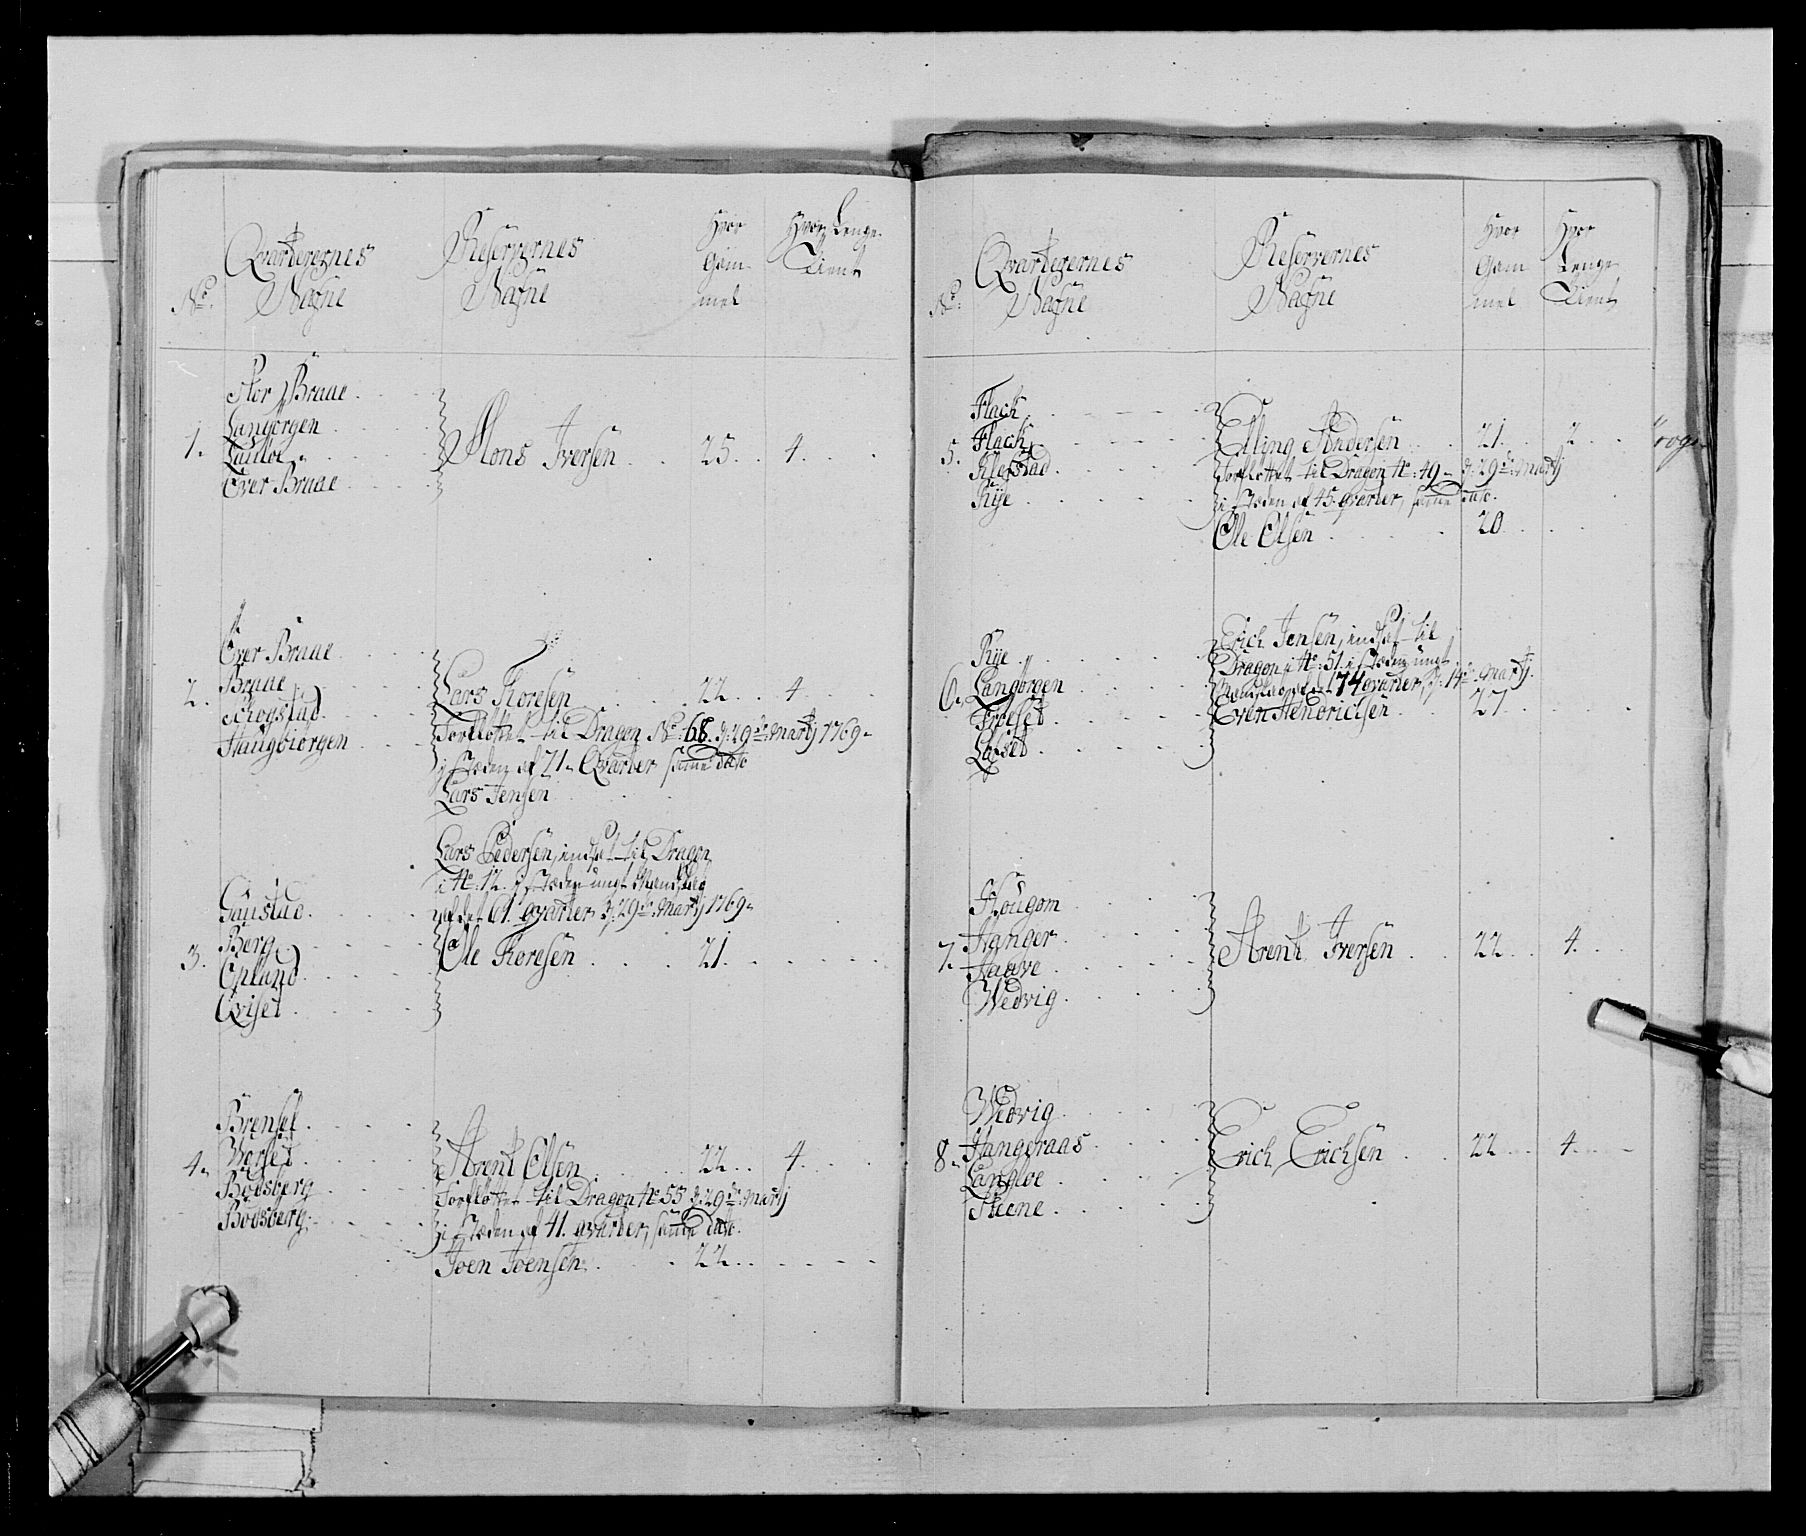 No.
Qvarterernes
Nafne
Reservernes
Nafne
Hvor
Gam
mel
Hvor Lenge
Tient
1.
Stor Braae
Langørgen
Lauloe
Over Braae
Mons Iversen 25 4
2.
Over Braae
Braae
Schogstad
Haugbiørgen
Lars Toresen 22 4
Forfløttet til Dragon No: 68. d: 29de Martij 1769
i Stæden af 71 Qvarter samme dato
Lars Jensen
3.
Gaustad
Berg
Opland
Qviset
Lars Pedersen, indsat til Dragon
i No: 12. i Stæden ungt Mandskab
af det 61. qvarter d: 29de Martij 1769
Ole Toresen 21.
4.
Brenset
Worset
Bodsberg
Bodsberg
Arent Olsen 22 4
Forfløttet til Dragon No 55 d: 29de Martij
i Stæden af 41. qvarter, samme dato.
Joen Joensen 22
No.
Qvarterernes
Nafne
Reservernes
Nafne
Hvor
Gam
mel
Hvor
Lenge
Tient
5.
Flack
Flack
Klefstad
Rye
Elling Andersen 21 2
Forfløttet til Dragon No: 49 d: 29de Martij
i Stæden af 45 qvarter, samme dato.
Ole Olsen 20
6.
Rye
Langørgen
Frøeset
Løfset
Erich Jensen, indsat til
Dragon i No: 51. i Stæden ungt
Mandskab af det 74 qvarter, d: 14de Martij
Even Hendrichsen 27
7.
Hougom
Hanger
Haave
Wedvig
Arent Iversen 22 4
8.
Wedvig
Hangeraas
Langloe
Steene
Erich Erichsen 22 4